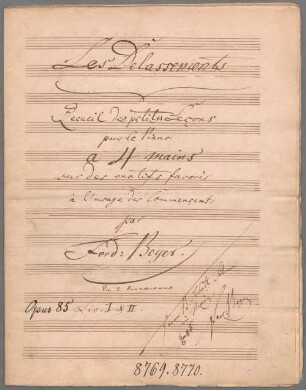 Les Délassements
Recueil des petites Leçons
pour le Piano
à 4 mains
sur des motifs favoris
à l'usage des Commençants
par
Ferd: Beyer.
En 2
Opus 85 Liv: I & II.
8769.8770.